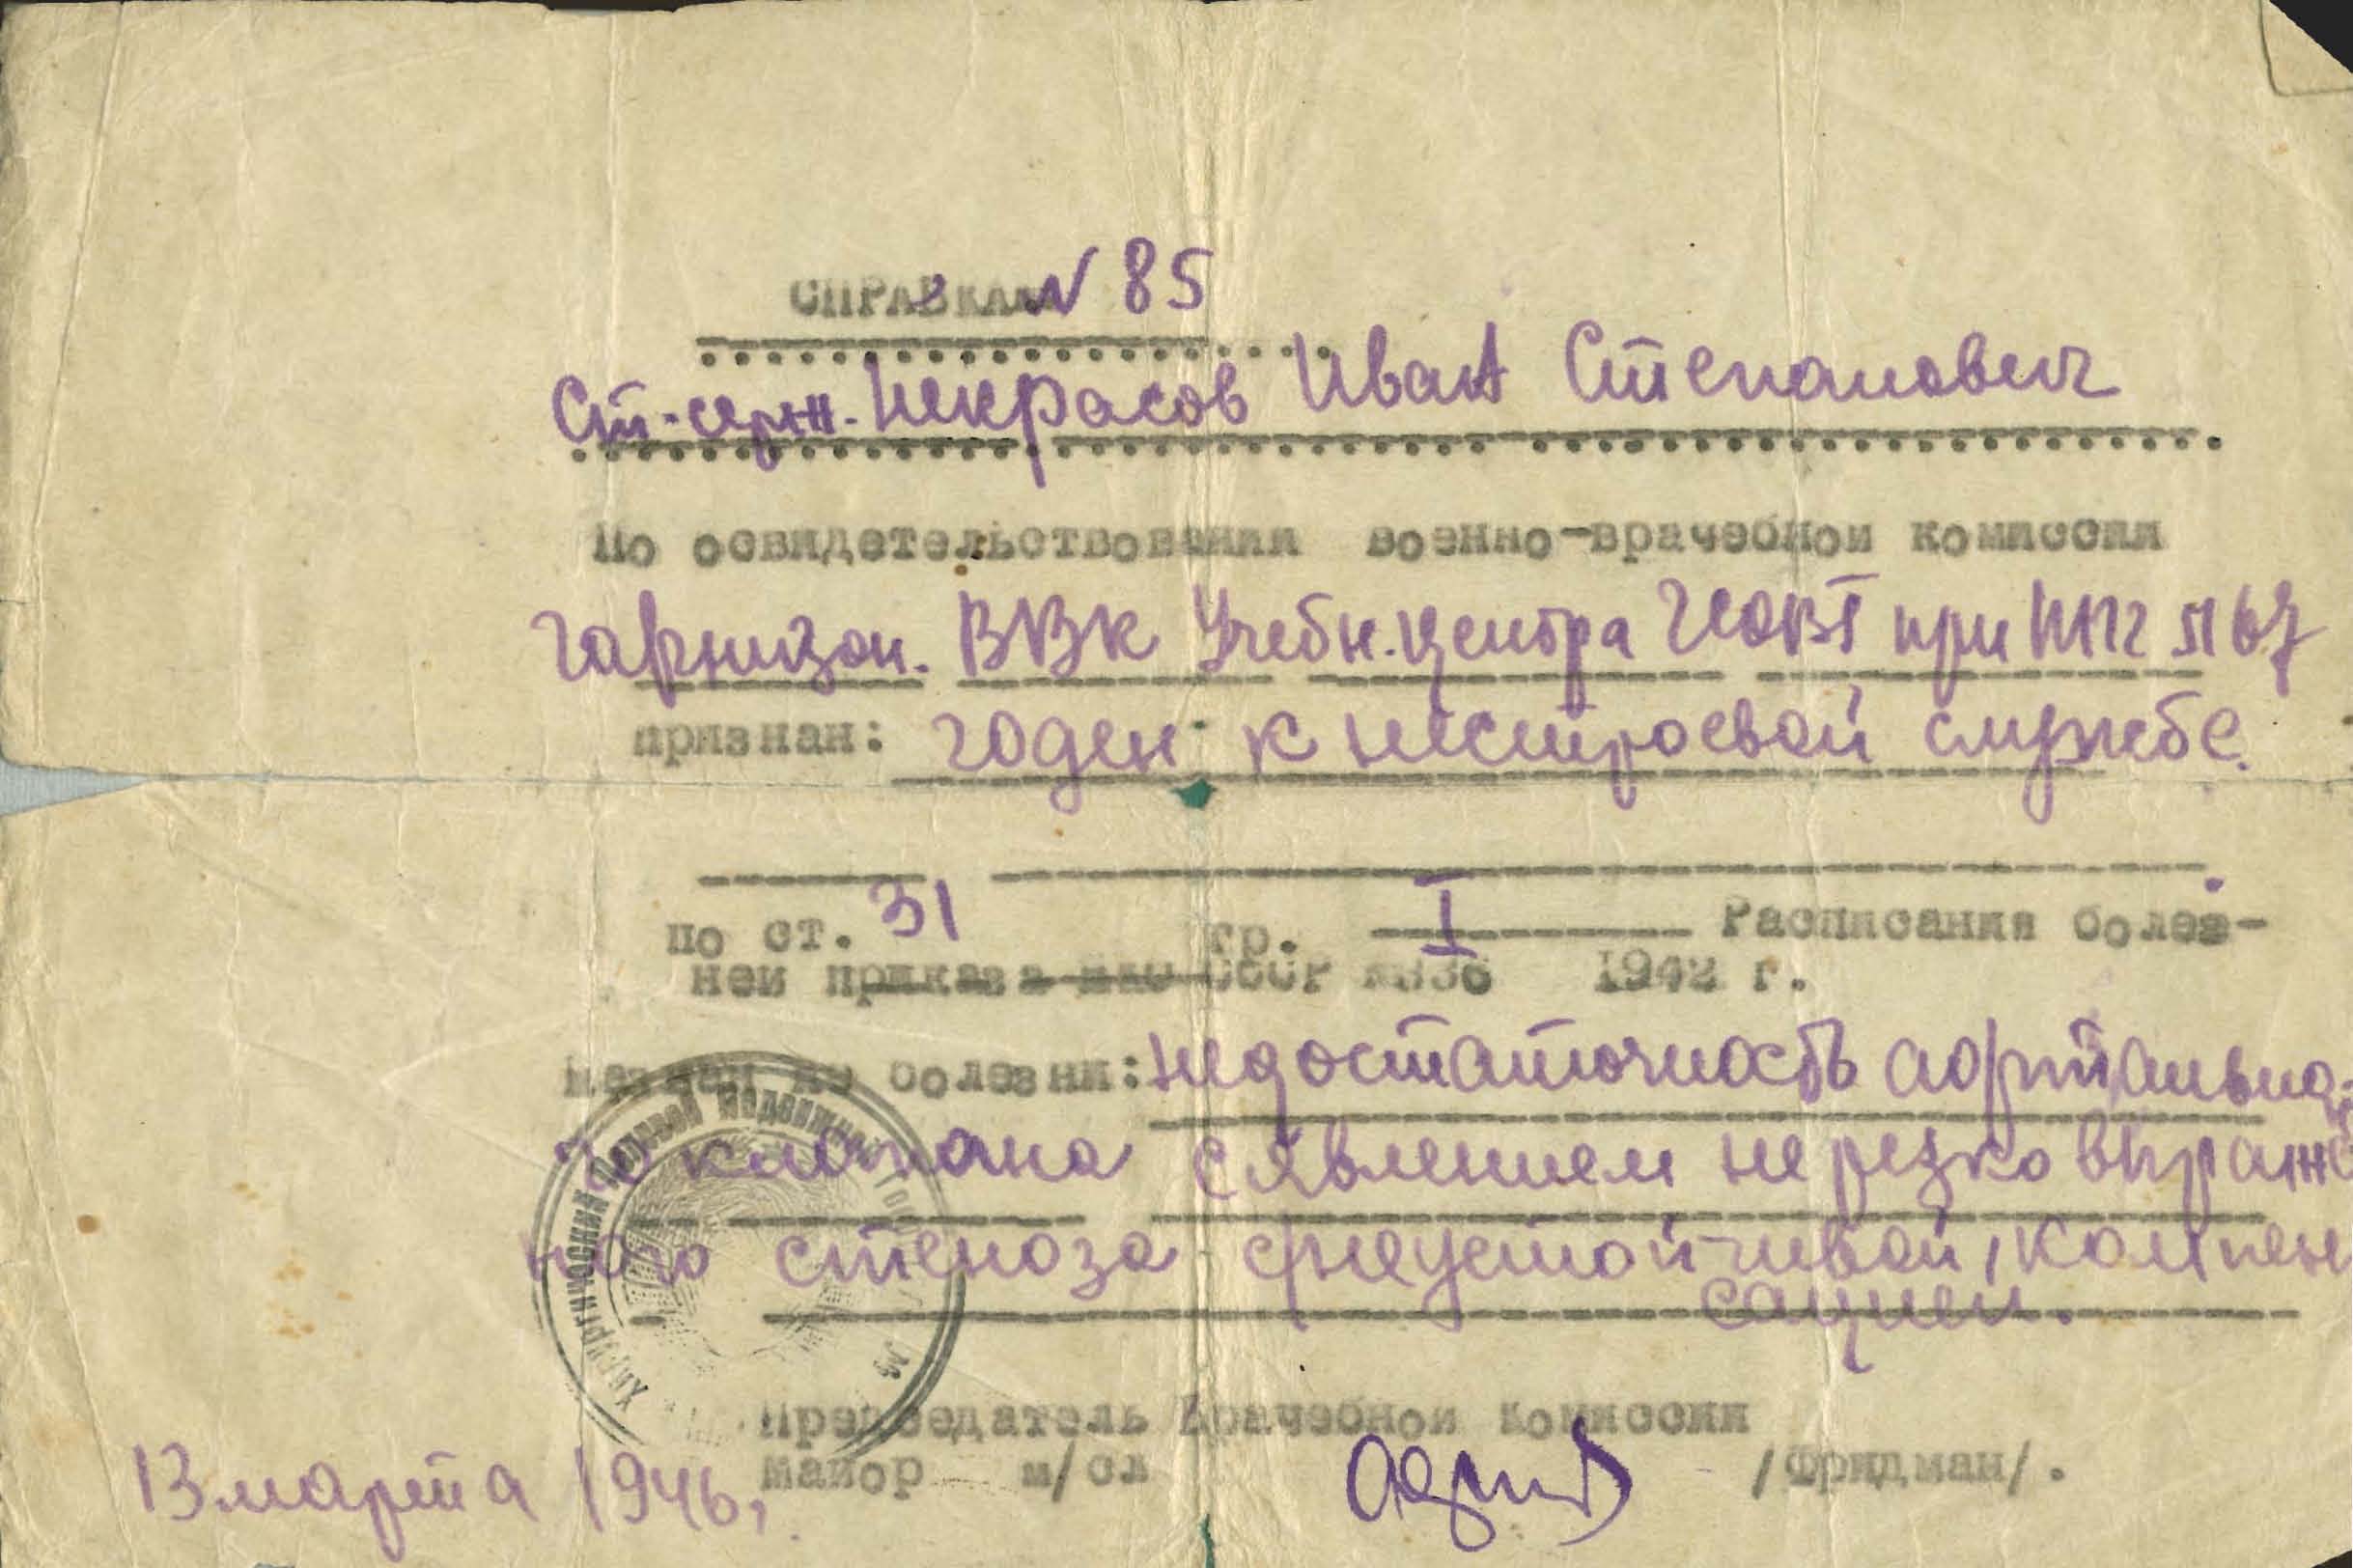 СПРАВКА N 85
Ст. серж. Некрасов Иван Степанович
По освидетельствовании военно-врачебной комиссии
гарнизон. ВВК Учебн. центра при № 67
признан: годен к нестроевой службе.
по ст. 31 гр. I Расписания болез-
ней приказа НКО СССР №336 1942 г.
название болезни: недостаточность аортально-
го клапана с явлением не резко выражен
ного стеноза с неустойчивой компен
сацией.
Хирургический Полевой Подвижной
Председатель Врачебной Комиссии
майор м/сл /Фридман/.
13 марта 1946г.